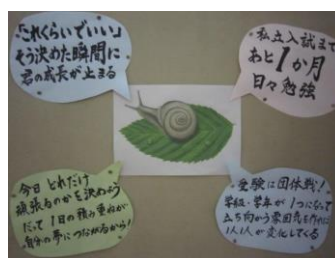 「これくらいでいい」
そう決めた瞬間に
君の成長が止まる
私立入試まで
あと1か月
日々勉強
今日どれだけ
頑張るのかを決めよう
だって1日の積み重ねが
自分の夢につながるから!
受験は団体戦!
学級・学年が1つになって
立ち向かう雰囲気を作れば
1人1人が変化してくる